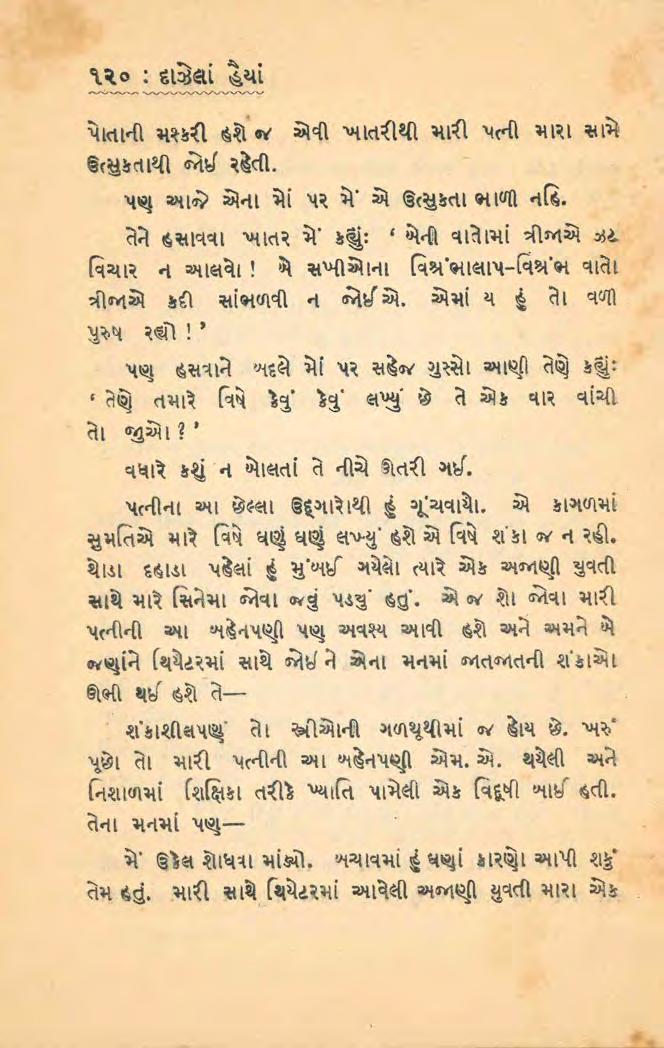 ૧૨૦ : દાઝેલાં હૈયાં
પોતાની મશ્કરી હશે જ એવી ખાતરીથી મારી પત્ની મારા સામે
ઉત્સુકતાથી જોઈ રહેતી.
પણ આજે એના મોં પર મેં એ ઉત્સુકતા ભાળી નહિ.
તેને હસાવવા ખાતર મેં કહ્યુંઃ ‘ બેની વાતોમાં ત્રીજાએ ઝટ
વિચાર ન આલવો ! બે સખીઓના વિશ્રંભાલાપ-વિશ્રંભ વાતો
ત્રીજાએ કદી સાંભળવી ન જોઈએ. એમાં ય હું તો વળી
પુરુષ રહ્યો ! ’
પણ હસવાને બદલે મોં પર સહેજ ગુસ્સો આણી તેણે કહ્યુંઃ
‘ તેણે તમારે વિષે કેવું કેવું લખ્યું છે તે એક વાર વાંચી
તો જુઓ ? ’
વધારે કશું ન બોલતાં તે નીચે ઊતરી ગઈ.
પત્નીના આ છેલ્લા ઉદ્ગારોથી હું ગૂંચવાયો. એ કાગળમાં
સુમતિએ મારે વિષે ઘણું ઘણું લખ્યું હશે એ વિષે શંકા જ ન રહી.
થોડા દહાડા પહેલાં હું મુંબઈ ગયેલો ત્યારે એક અજાણી યુવતી
સાથે મારે સિનેમા જોવા જવું પડયું હતું. એ જ શો જોવા મારી
પત્નીની આ બહેનપણી પણ અવશ્ય આવી હશે અને અમને બે
જણાંને થિયેટરમાં સાથે જોઈ ને એના મનમાં જાતજાતની શંકાઓ
ઊભી થઈ હશે તે—
શંકાશીલપણું તો સ્ત્રીઓની ગળથૂથીમાં જ હોય છે. ખરું
પૂછો તો મારી પત્નીની આ બહેનપણી એમ. એ. થયેલી અને
નિશાળમાં શિક્ષિકા તરીકે ખ્યાતિ પામેલી એક વિદૂષી બાઈ હતી.
તેના મનમાં પણ—
મેં ઉકેલ શોધવા માંડ્યો. બચાવમાં હું ઘણાં કારણો આપી શકું
તેમ હતું. મારી સાથે થિયેટરમાં આવેલી અજાણી યુવતી મારા એક